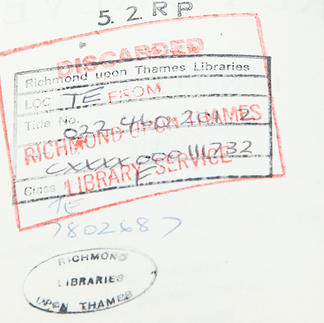 5.2 RP
DISCARDED
Richmond upon Thames Libraries
LOC TE FROM
Title No. 022 460 201 2
RICHMOND UPON THAMES
CXXXX 000111732
Class E LIBRARY SERVICE
TE
7802687
RICHMOND
LIBRARIES
UPON THAMES